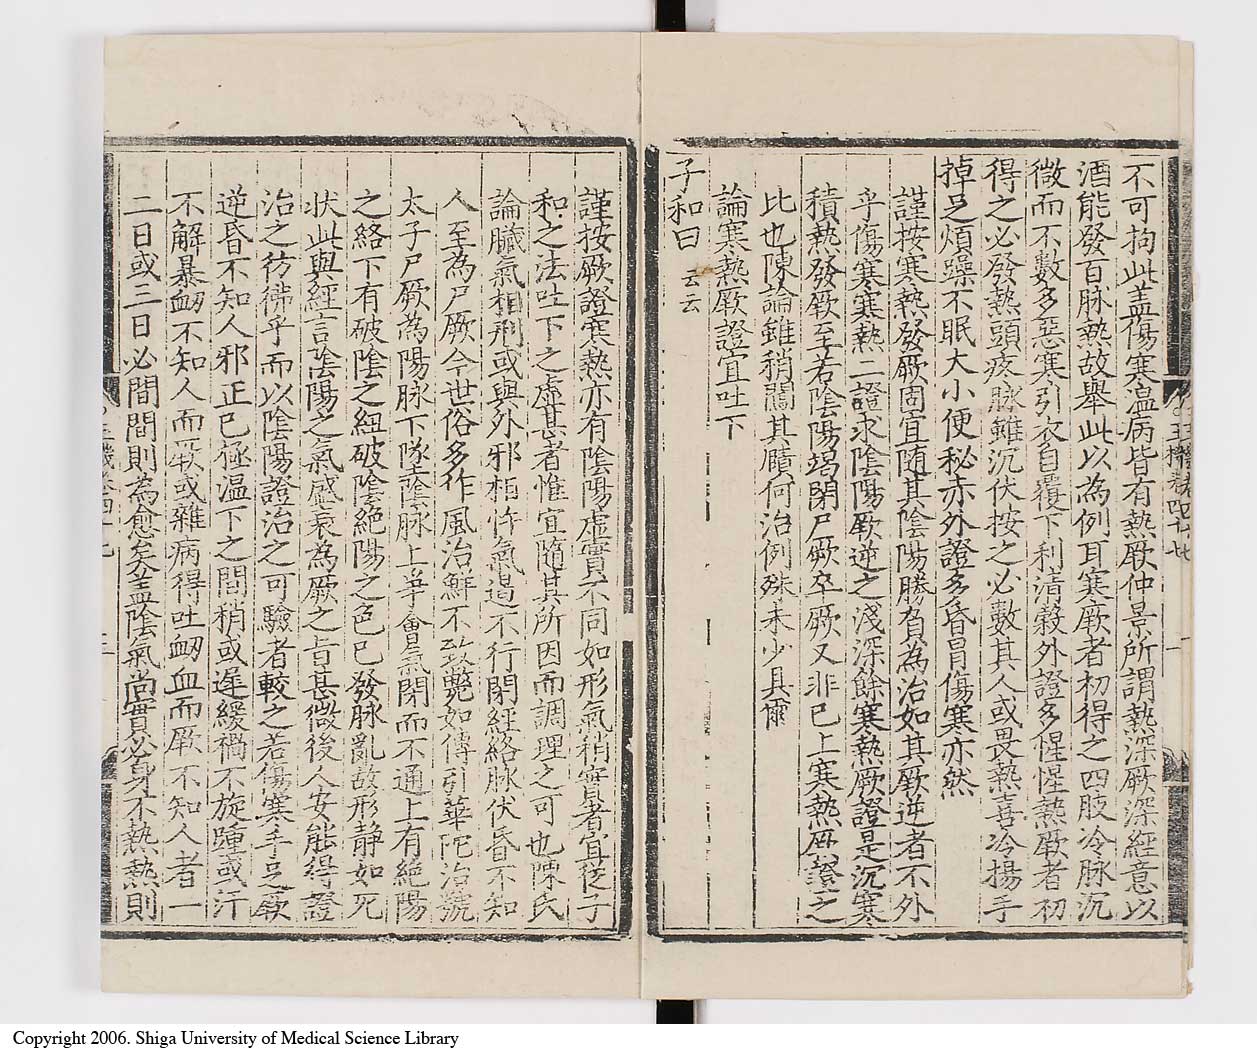 不可拘此盖傷寒温病皆有熱厥仲景所謂熱深厥深經意以
酒能發百脉熱故舉此以為例耳寒厥者初得之四肢冷脉沉
微而不數多惡寒引衣自覆下利清穀外證多惺惺熱厥者初
得之必發熱頭疼脉雖沉伏按之必數其人或畏熱喜冷揚手
掉足煩躁不眠大小便秘赤外證多昏冒傷寒亦然
謹按寒熱發厥固宜随其陰陽勝負為治如其厥逆者不外
乎傷寒寒熱二證求陰陽厥逆之淺深餘寒熱厥證是沉寒
積熱發厥至若陰陽竭閉尸厥卒厥又非已上寒熱厥證之
比也陳論雖稍闊其賾何治例殊未少具爾
論寒熱厥證宜吐下
子和曰云云
謹按厥證寒熱亦有陰陽虛實不同如形氣稍實者宜從子
和之法吐下之虛甚者惟宜随其所因而調理之可也陳氏
論臟氣相刑或與外邪相忤氣遏不行閉經絡脉伏昏不知
人至為尸厥今世俗多作風治鮮不致斃如傳引華陀治虢
太子尸厥為陽脉下隊陰脉上爭會氣閉而不通上有絶陽
之絡下有破陰之紐破陰絶陽之色已發脉亂故形静如死
状此與經言陰陽之氣盛衰為厥之旨甚微後人安能得證
治之彷彿乎而以陰陽證治之可驗者較之若傷寒手足厥
逆昏不知人邪正已極温下之間稍或遲緩禍不旋踵或汗
不解暴衂不知人而厥或雜病得吐衂血而厥不知人者一
二日或三日必間間則為愈矣盖陰氣當實必身不熱熱則